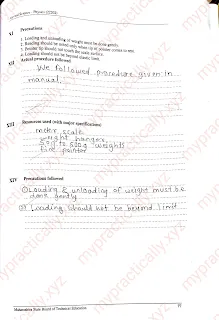 XI Precautions
1. Loading and unloading of weight must be done gently.
2. Reading should be noted only when tip of pointer comes to rest.
3. Pointer tip should not touch the scale surface.
4. Loading should not be beyond elastic limit.
XII Actual procedure followed
We followed procedure given in
manual.
XIII Resources used (with major specifications)
meter scale
weight hanger,
50g to 500g weights
fine pointer
XIV Precautions followed
① Loading & unloading of weight must be
done gently
② Loading should not be beyond limit
Maharashtra State Board of Technical Education
mypractically.xyz